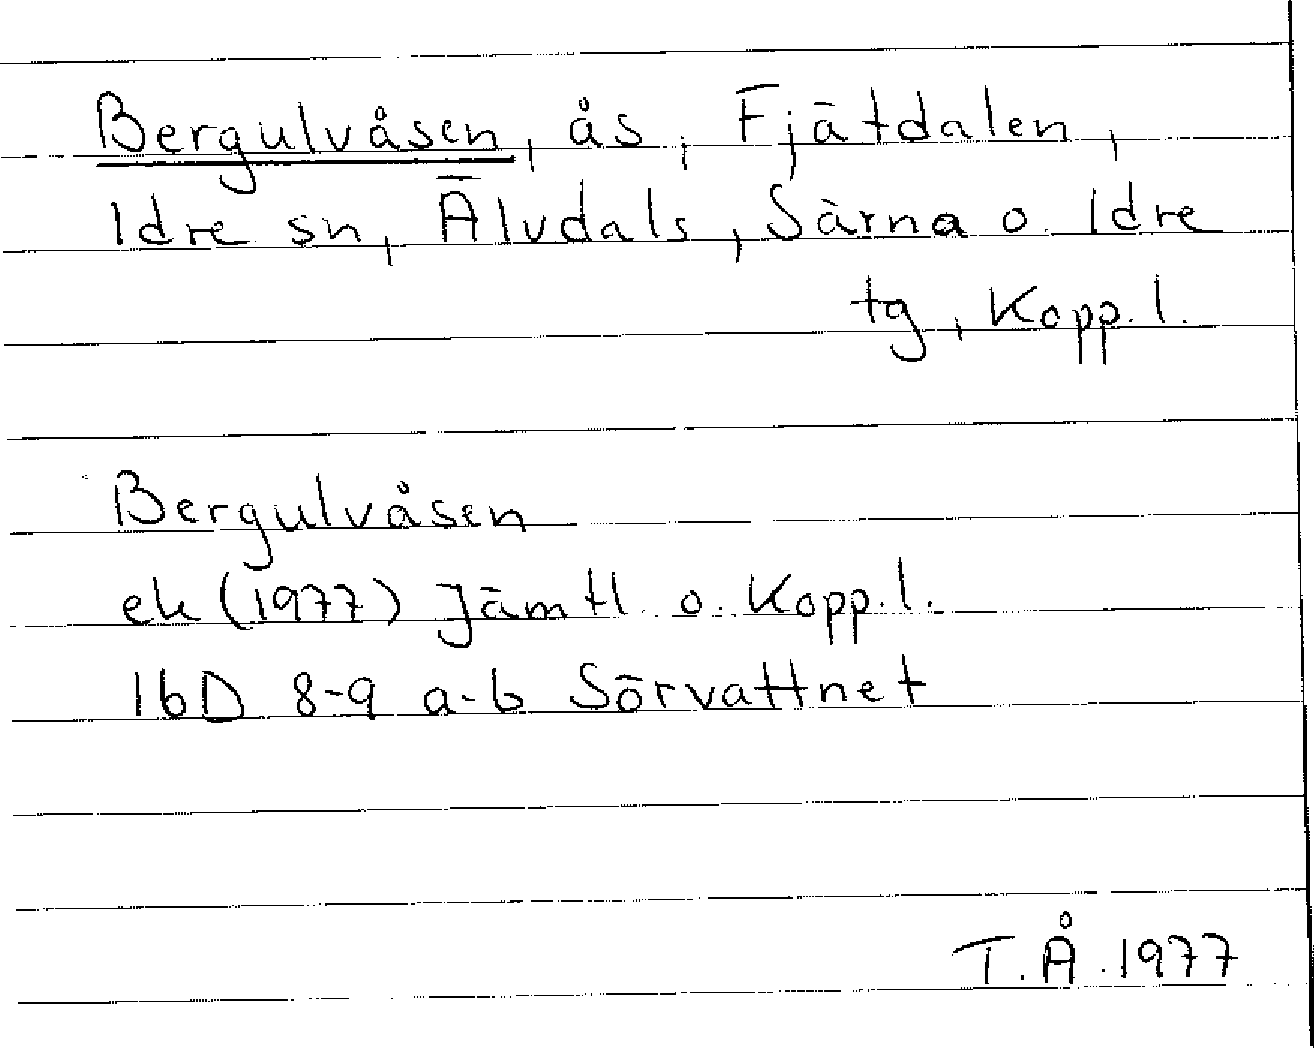 Bergulvåsen, ås, Fjätdalen,
Idre sn, Älvdals, Särna o. Idre
tg, Kopp. l.
Bergulvåsen
ek (1977) Jämtl. o. Kopp. l.
16D 8-9 a-b Sörvattnet
T.Å. 1977